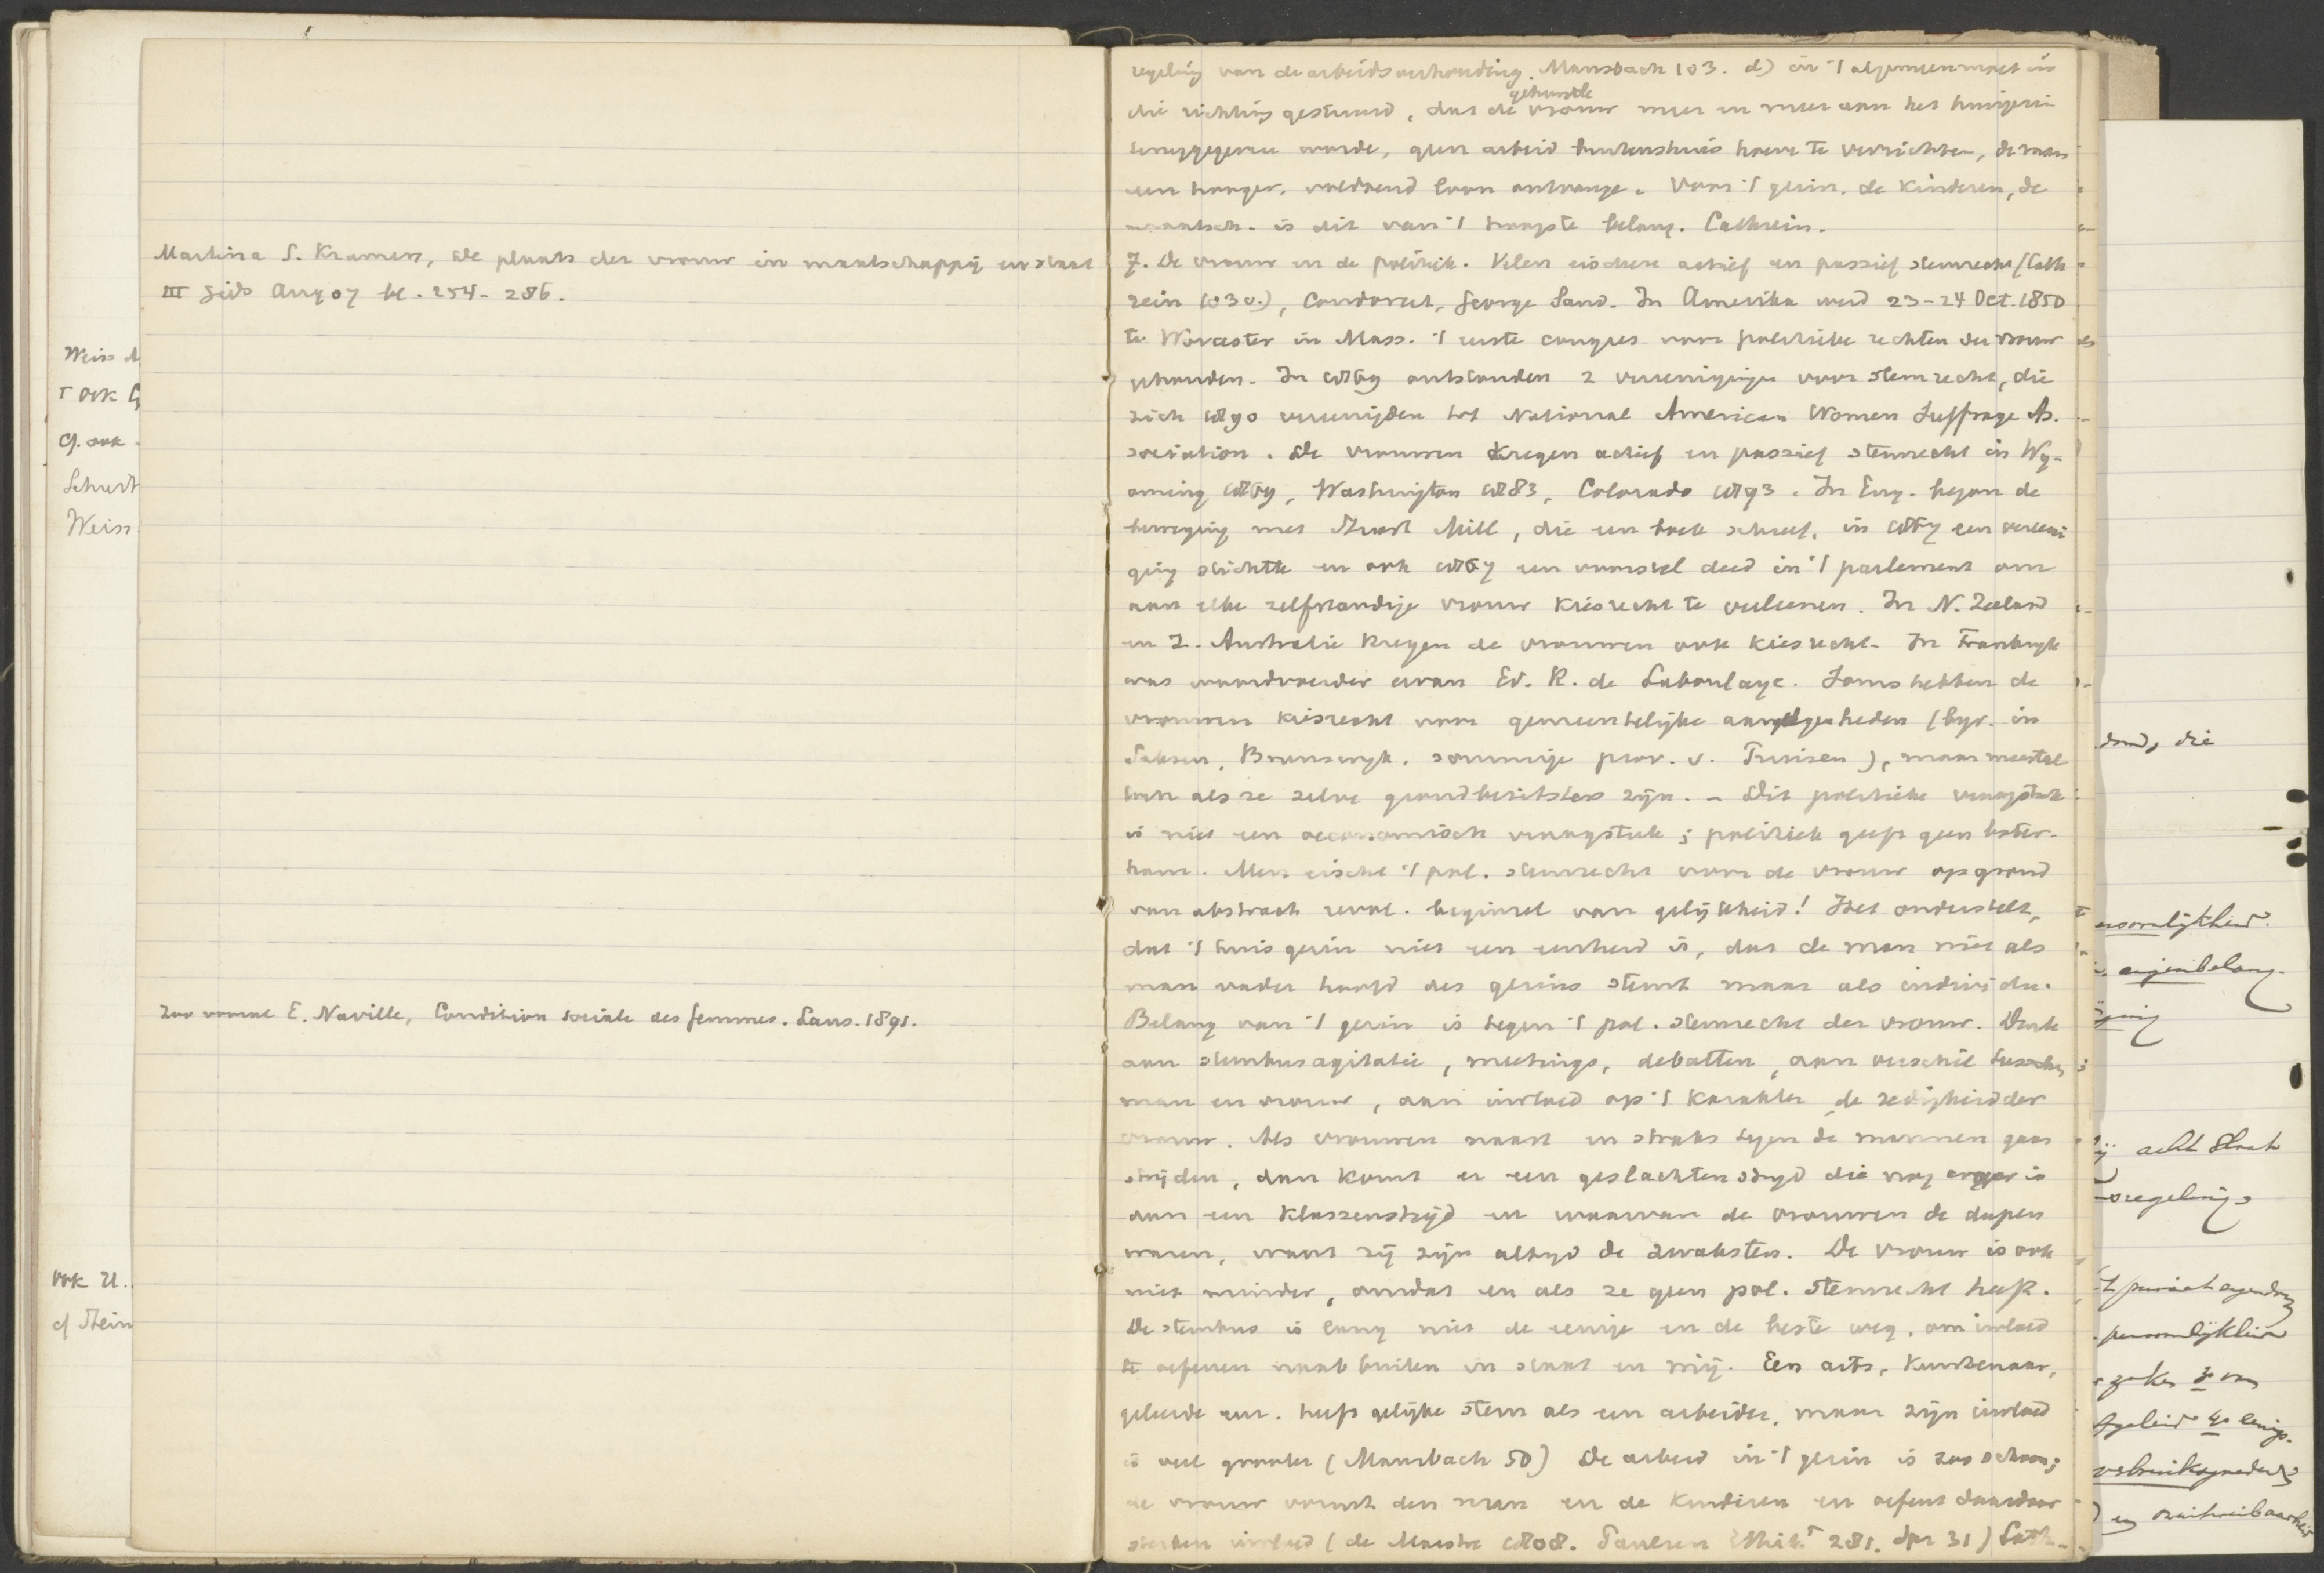 Martina G. Kramers, De plaats der vrouw in maatschappij en staat
III Gids Aug 07 bl. 254-286.
Zoo vooral E. Naville, Condition sociale des femmes. Laus. 1891.
regeling van de arbeidsverhouding. Mansbach 103. d) in 't algemeen moet in
die richting gestuurd, dat de gehuwde vrouw meer en meer aan het huisgezin
teruggegeven worde, geen arbeid buitenshuis hoeve te verrichten, de man
een hooger, voldoend loon ontvange. Voor 't gezin, de kinderen, de
maatsch. is dit van 't hoogste belang. Cathrein.
7. De vrouw in de politiek. Velen eischen actief en passief stemrecht (Cath
rein 103v.), Condorcet, George Sand. In Amerika werd 23-24 Oct. 1850
te Worcester in Mass. 't eerste congres voor politieke rechten der vrouw
gehouden. In 1869 ontstonden 2 vereenigingen voor stemrecht, die
zich 1890 vereenigden tot National American Women Suffrage As.
sociation. De vrouwen kregen actief en passief stemrecht in Wy-
oming 1869, Washington 1883, Colorado 1893. In Eng. begon de
beweging met Stuart Mill, die een boek schreef, in 1867 een vereeni
ging stichtte en ook 1867 een voorstel deed in 't parlement om
aan elke zelfstandige vrouw kiesrecht te verleenen. In N. Zeeland
en Z. Australie kregen de vrouwen ook kiesrecht. In Frankryk
was woordvoerder ervan Ed. R. de Laboulaye. Soms hebben de
vrouwen kiesrecht voor gemeentelijke aangelegenheden (byv. in
Saksen, Brunswyk, sommige prov. v. Pruisen), maar meestal
toch als ze zelve grondbezitsters zijn. - Dit politieke vraagstuk
is niet een oeconomisch vraagstuk; politiek geeft geen boter-
ham. Men eischt 't pol. stemrecht voor de vrouw op grond
van abstract revol. beginsel van gelijkheid! Het onderstelt,
dat 't huisgezin niet een eenheid is, dat de man niet als
man vader hoofd des gezins stemt maar als individu.
Belang van 't gezin is tegen 't pol. stemrecht der vrouw. Denk
aan stembusagitatie, meetings, debatten, aan verschil tusschen
man en vrouw, aan invloed op 't karakter, de zedigheid der
vrouw. Als vrouwen naast en straks tegen de mannen gaan
strijden, dan komt er een geslachtenstryd die nog erger is
dan een klassenstrijd en waarvan de vrouwen de dupen
waren, want zij zijn altyd de zwaksten. De vrouw is ook
niet minder, omdat en als ze geen pol. stemrecht heeft.
De stembus is lang niet de eenige en de beste weg, om invloed
te oefenen naar buiten in staat en mij. Een arts, kunstenaar,
geleerde enz. heeft gelijke stem als een arbeider, maar zijn invloed
is veel grooter (Mansbach 50) De arbeid in 't gezin is zoo schoon;
de vrouw vormt den man en de kinderen en oefent daardoor
sterken invloed (de Maistre 1808. Paulsen Ethik 281. Spr 31) Cath-
Weiss
ook
cf. ook
Weiss
ook
cf Stein
die
eigenbelang
acht